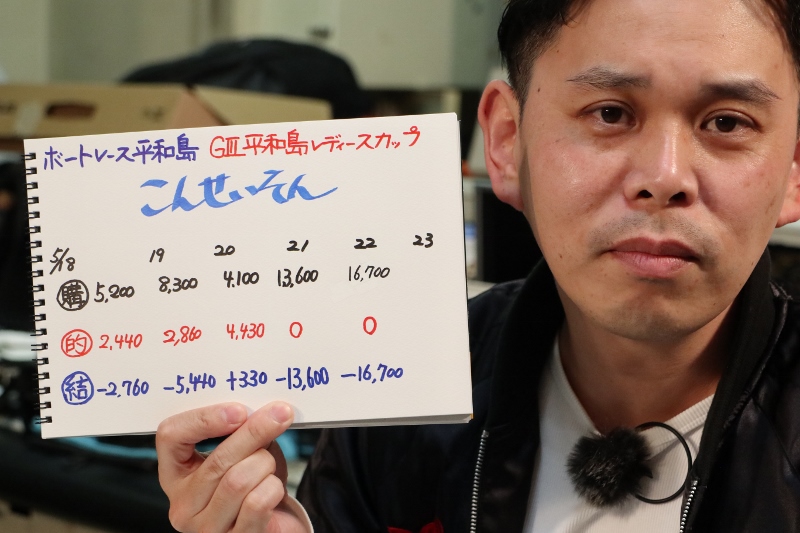 ボートレース平和島 GIII平和島レディースカップ
こんせいそん
5/18 19 20 21 22 23
購 5,200 8,300 4,100 13,600 16,700
的 2,440 2,860 4,430 0 0
結 -2,760 -5,440 +330 -13,600 -16,700